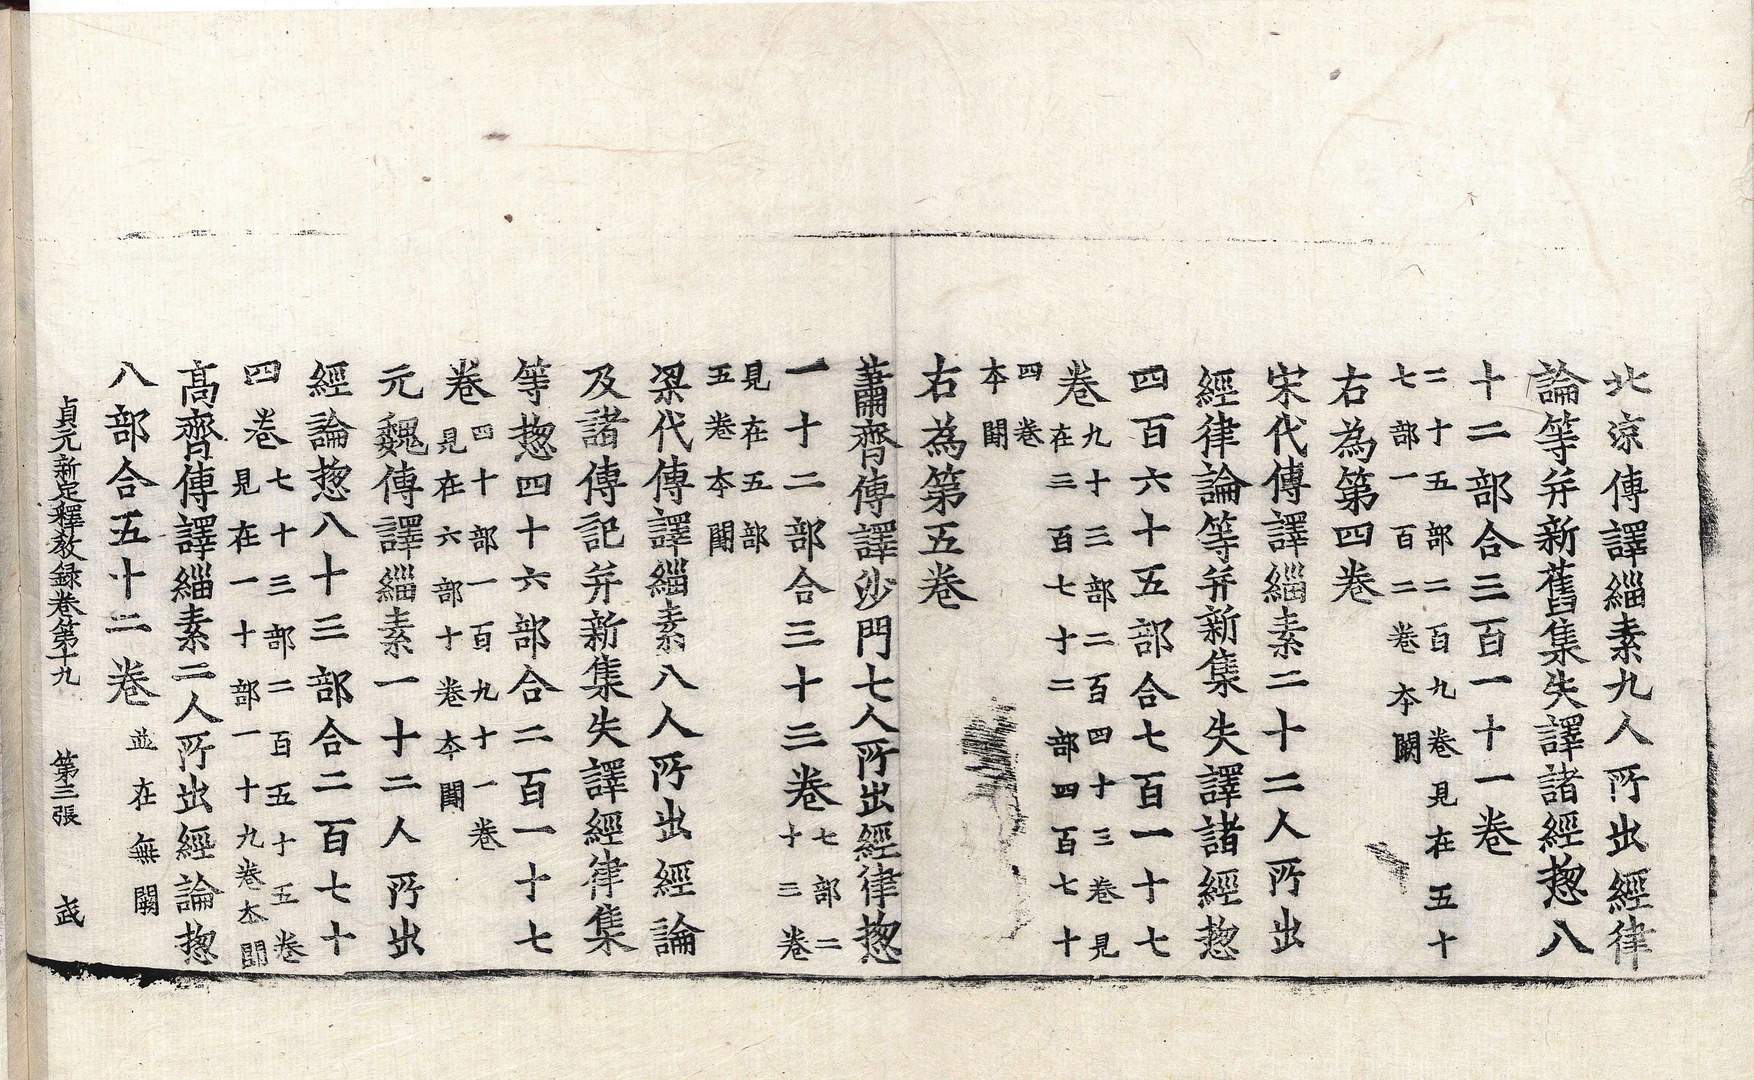 北涼傳譯緇素九人所出經律
論等并新舊集失譯諸經惣八
十二部合三百一十一卷
二十五部二百九卷見在五十
七部一百二卷本闕
右為第四卷
宋代傳譯緇素二十二人所出
經律論等并新集失譯諸經惣
四百六十五部合七百一十七
卷九十三部二百四十三卷見
在三百七十二部四百七十
四卷
本闕
右為第五卷
蕭齊傳譯沙門七人所出經律惣
一十二部合三十三卷七部二
十三卷
見在五部
五卷本闕
梁代傳譯緇素八人所出經論
及諸傳記并新集失譯經律集
等惣四十六部合二百一十七
卷四十部一百九十一卷
見在六部十卷本闕
元魏傳譯緇素一十二人所出
經論惣八十三部合二百七十
四卷七十三部二百五十五卷
見在一十部一十九卷本闕
高齊傳譯緇素二人所出經論惣
八部合五十二卷並在無闕
貞元新定釋教録卷第十九 第三張 武